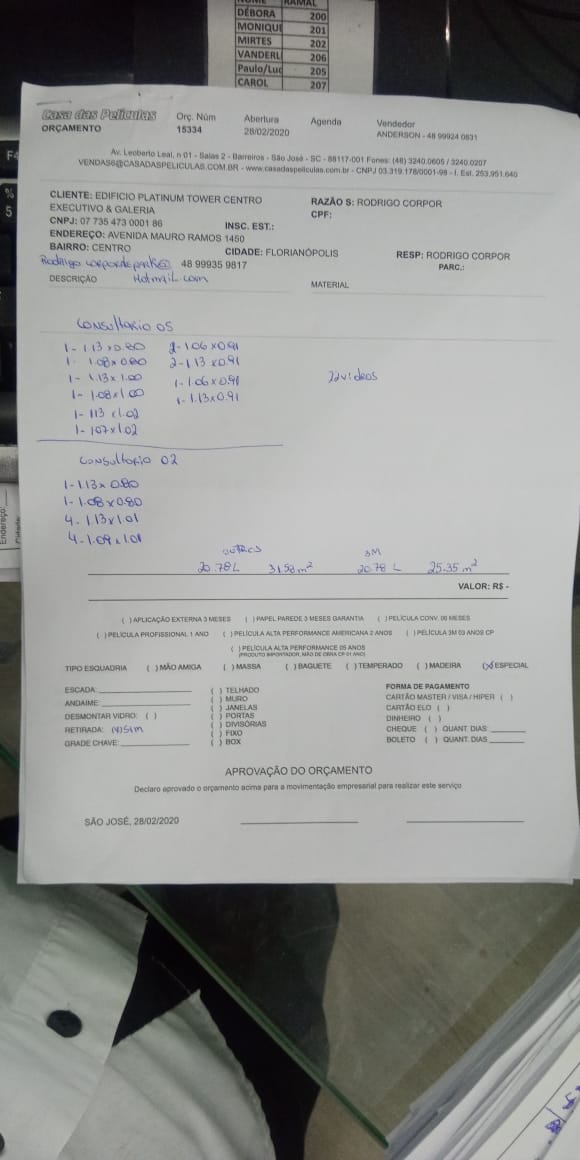 NOME RAMAL
DÉBORA 200
MONIQUE 201
MIRTES 202
VANDERL 206
Paulo/Luc 205
CAROL 207
F4
%
5
Casa das Películas
ORÇAMENTO
Orç. Núm
15334
Abertura
28/02/2020
Agenda
Vendedor
ANDERSON - 48 99924 0831
Av. Leoberto Leal, n 01 - Salas 2 - Barreiros - São José - SC - 88117-001 Fones: (48) 3240.0605 / 3240.0207
VENDAS6@CASADASPELICULAS.COM.BR - www.casadaspeliculas.com.br - CNPJ 03.319.178/0001-98 - I. Est. 253.951.640
CLIENTE: EDIFICIO PLATINUM TOWER CENTRO
EXECUTIVO & GALERIA
RAZÃO S: RODRIGO CORPOR
CPF:
CNPJ: 07 735 473 0001 86 INSC. EST.:
ENDEREÇO: AVENIDA MAURO RAMOS 1450
BAIRRO: CENTRO CIDADE: FLORIANÓPOLIS RESP: RODRIGO CORPOR
48 99935 9817 PARC.:
Hotmail.com
DESCRIÇÃO MATERIAL
Consultorio 05
1- 1.13 x 0.80 2- 1.06 x 0.91
1- 1.08 x 0.80 2- 1.13 x 0.91
1- 1.13 x 1.00 1- 1.06 x 0.91
1- 1.08 x 1.00 1- 1.13 x 0.91
1- 113 x 1.02
1- 107 x 1.02
22 vidros
Consultorio 02
1- 1.13 x 0.80
1- 1.08 x 0.80
4- 1.13 x 1.01
4- 1.09 x 1.01
outras 3M
20.78 L 31.58 m² 20.78 L 25.35 m²
VALOR: R$ -
( ) APLICAÇÃO EXTERNA 3 MESES ( ) PAPEL PAREDE 3 MESES GARANTIA ( ) PELÍCULA CONV. 06 MESES
( ) PELÍCULA PROFISSIONAL 1 ANO ( ) PELÍCULA ALTA PERFORMANCE AMERICANA 2 ANOS ( ) PELÍCULA 3M 03 ANOS CP
( ) PELÍCULA ALTA PERFORMANCE 05 ANOS
(PRODUTO IMPORTADOR, MÃO DE OBRA CP 01 ANO)
TIPO ESQUADRIA ( ) MÃO AMIGA ( ) MASSA ( ) BAGUETE ( ) TEMPERADO ( ) MADEIRA (X) ESPECIAL
ESCADA:
ANDAIME:
DESMONTAR VIDRO: ( )
RETIRADA: (x) Sim
GRADE CHAVE:
( ) TELHADO
( ) MURO
( ) JANELAS
( ) PORTAS
( ) DIVISÓRIAS
( ) FIXO
( ) BOX
FORMA DE PAGAMENTO
CARTÃO MASTER / VISA / HIPER ( )
CARTÃO ELO ( )
DINHEIRO ( )
CHEQUE ( ) QUANT. DIAS:
BOLETO ( ) QUANT. DIAS
APROVAÇÃO DO ORÇAMENTO
Declaro aprovado o orçamento acima para a movimentação empresarial para realizar este serviço
SÃO JOSÉ, 28/02/2020
Endereço: